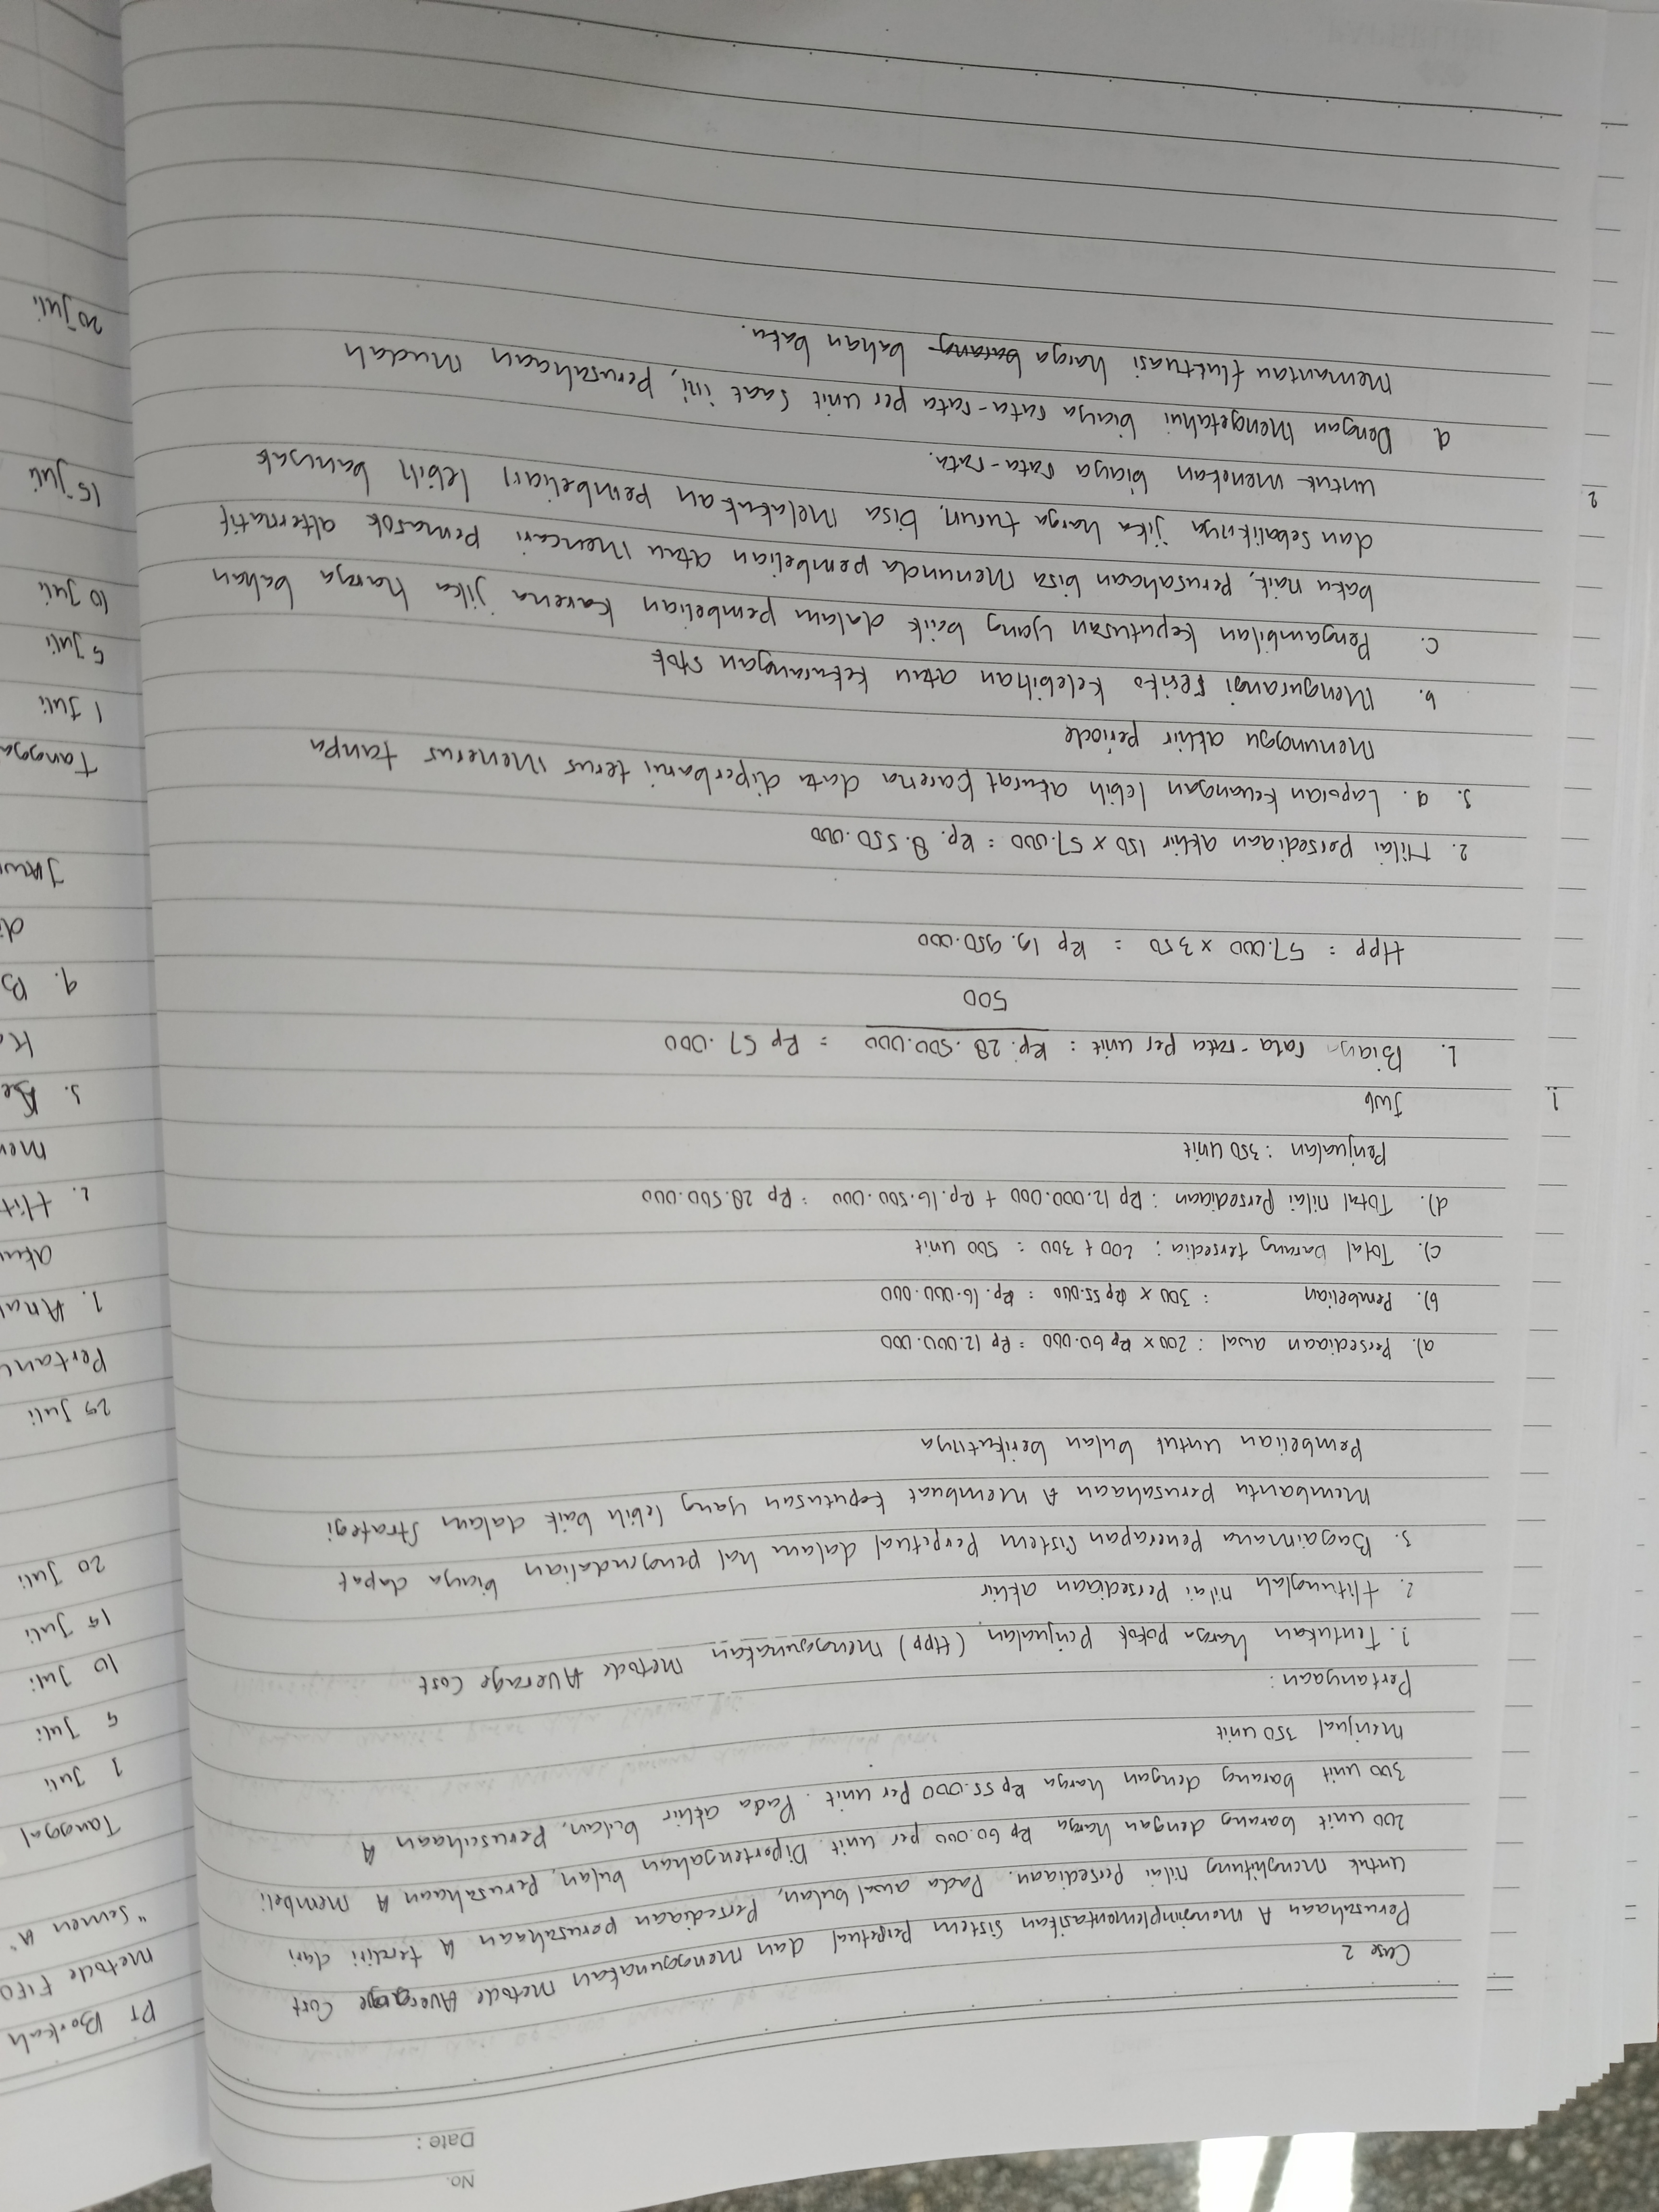 No.
Date :
Case 2
Perusahaan A mengimplementasikan sistem perpetual dan menggunakan metode Average Cost
untuk menghitung nilai persediaan. Pada awal bulan, Persediaan perusahaan A terdiri dari
200 unit barang dengan harga Rp 60.000 per unit. Dipertengahan bulan, Perusahaan A membeli
300 unit barang dengan harga Rp 55.000 per unit. Pada akhir bulan, Perusahaan A
menjual 350 unit
Pertanyaan :
1. Tentukan harga pokok Penjualan (Hpp) menggunakan metode Average Cost
2. Hitunglah nilai Persediaan akhir
3. Bagaimana Penerapan sistem Perpetual dalam hal pengendalian biaya dapat
Membantu perusahaan A membuat keputusan yang lebih baik dalam strategi
Pembelian untuk bulan berikutnya
a). Persediaan awal : 200 x Rp 60.000 = Rp 12.000.000
b). Pembelian : 300 x Rp 55.000 = Rp. 16.000.000
c). Total barang tersedia : 200 + 300 = 500 unit
d). Total nilai Persediaan : Rp 12.000.000 + Rp. 16.500.000 = Rp 28.500.000
Penjualan : 350 unit
Jwb
1. Biaya rata-rata per unit : Rp. 28.500.000 = Rp 57.000
500
Hpp = 57.000 x 350 = Rp 19.950.000
2. Nilai persediaan akhir 150 x 57.000 = Rp. 8.550.000
3. a. Laporan keuangan lebih akurat karena data diperbarui terus menerus tanpa
menunggu akhir periode
b. Mengurangi resiko kelebihan atau kekurangan stok
c. Pengambilan keputusan yang baik dalam pembelian karena jika harga bahan
baku naik, perusahaan bisa menunda pembelian atau mencari pemasok alternatif
dan sebaliknya jika harga turun, bisa melakukan pembelian lebih banyak
untuk menekan biaya rata-rata.
d Dengan mengetahui biaya rata-rata per unit saat ini, perusahaan mudah
memantau fluktuasi harga barang bahan baku.
PT Berkah
Metode FIFO
"Semen A"
Tanggal
1 Juli
5 Juli
10 Juli
15 Juli
20 Juli
29 Juli
1.
2.
3.
4.
1 Juli
5 Juli
10 Juli
15 Juli
20 Juli